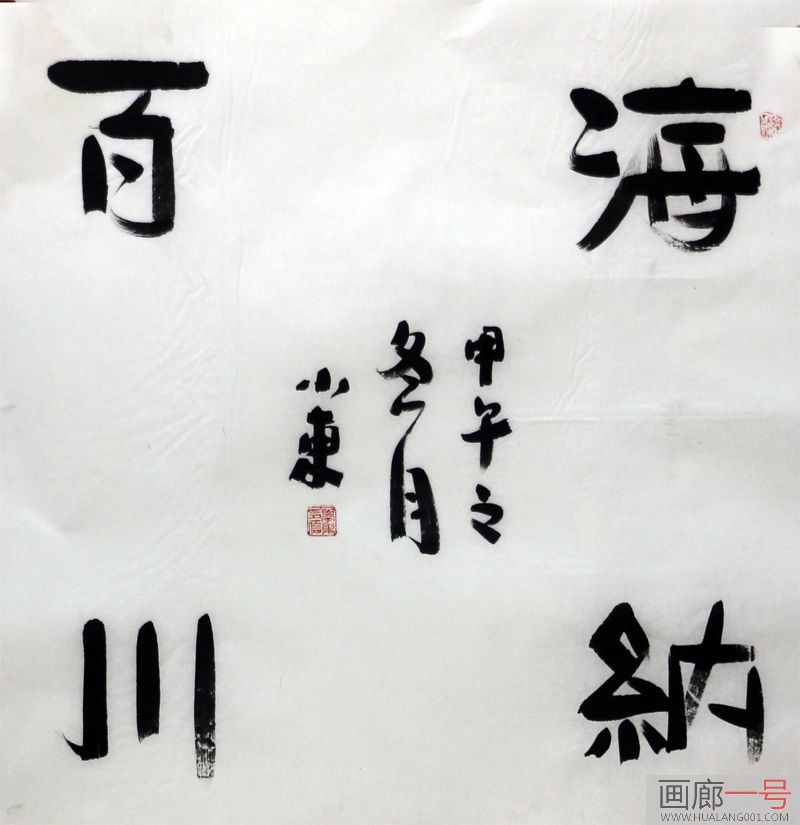 海納
百川
甲午之
冬月
小東
画廊一号
WWW.HUALANG001.COM